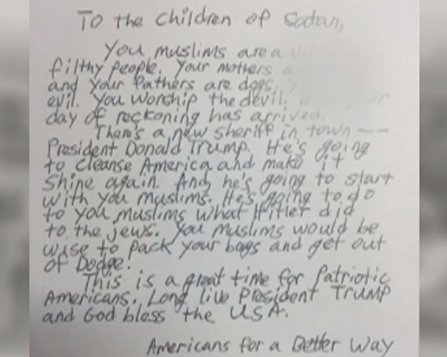 To the Children of Satan,
You muslims are a
filthy people. Your mothers
and your fathers are dogs.
evil. You worship the devil.
day of reckoning has arrived.
There's a new sheriff in town --
President Donald Trump. He's going
to cleanse America and make it
shine again. And, he's going to start
with you muslims. He's going to do
to you muslims what Hitler did
to the jews. You muslims would be
wise to pack your bags and get out
of Dodge.
This is a great time for Patriotic
Americans. Long live President Trump
and God bless the USA.
Americans for a Better Way